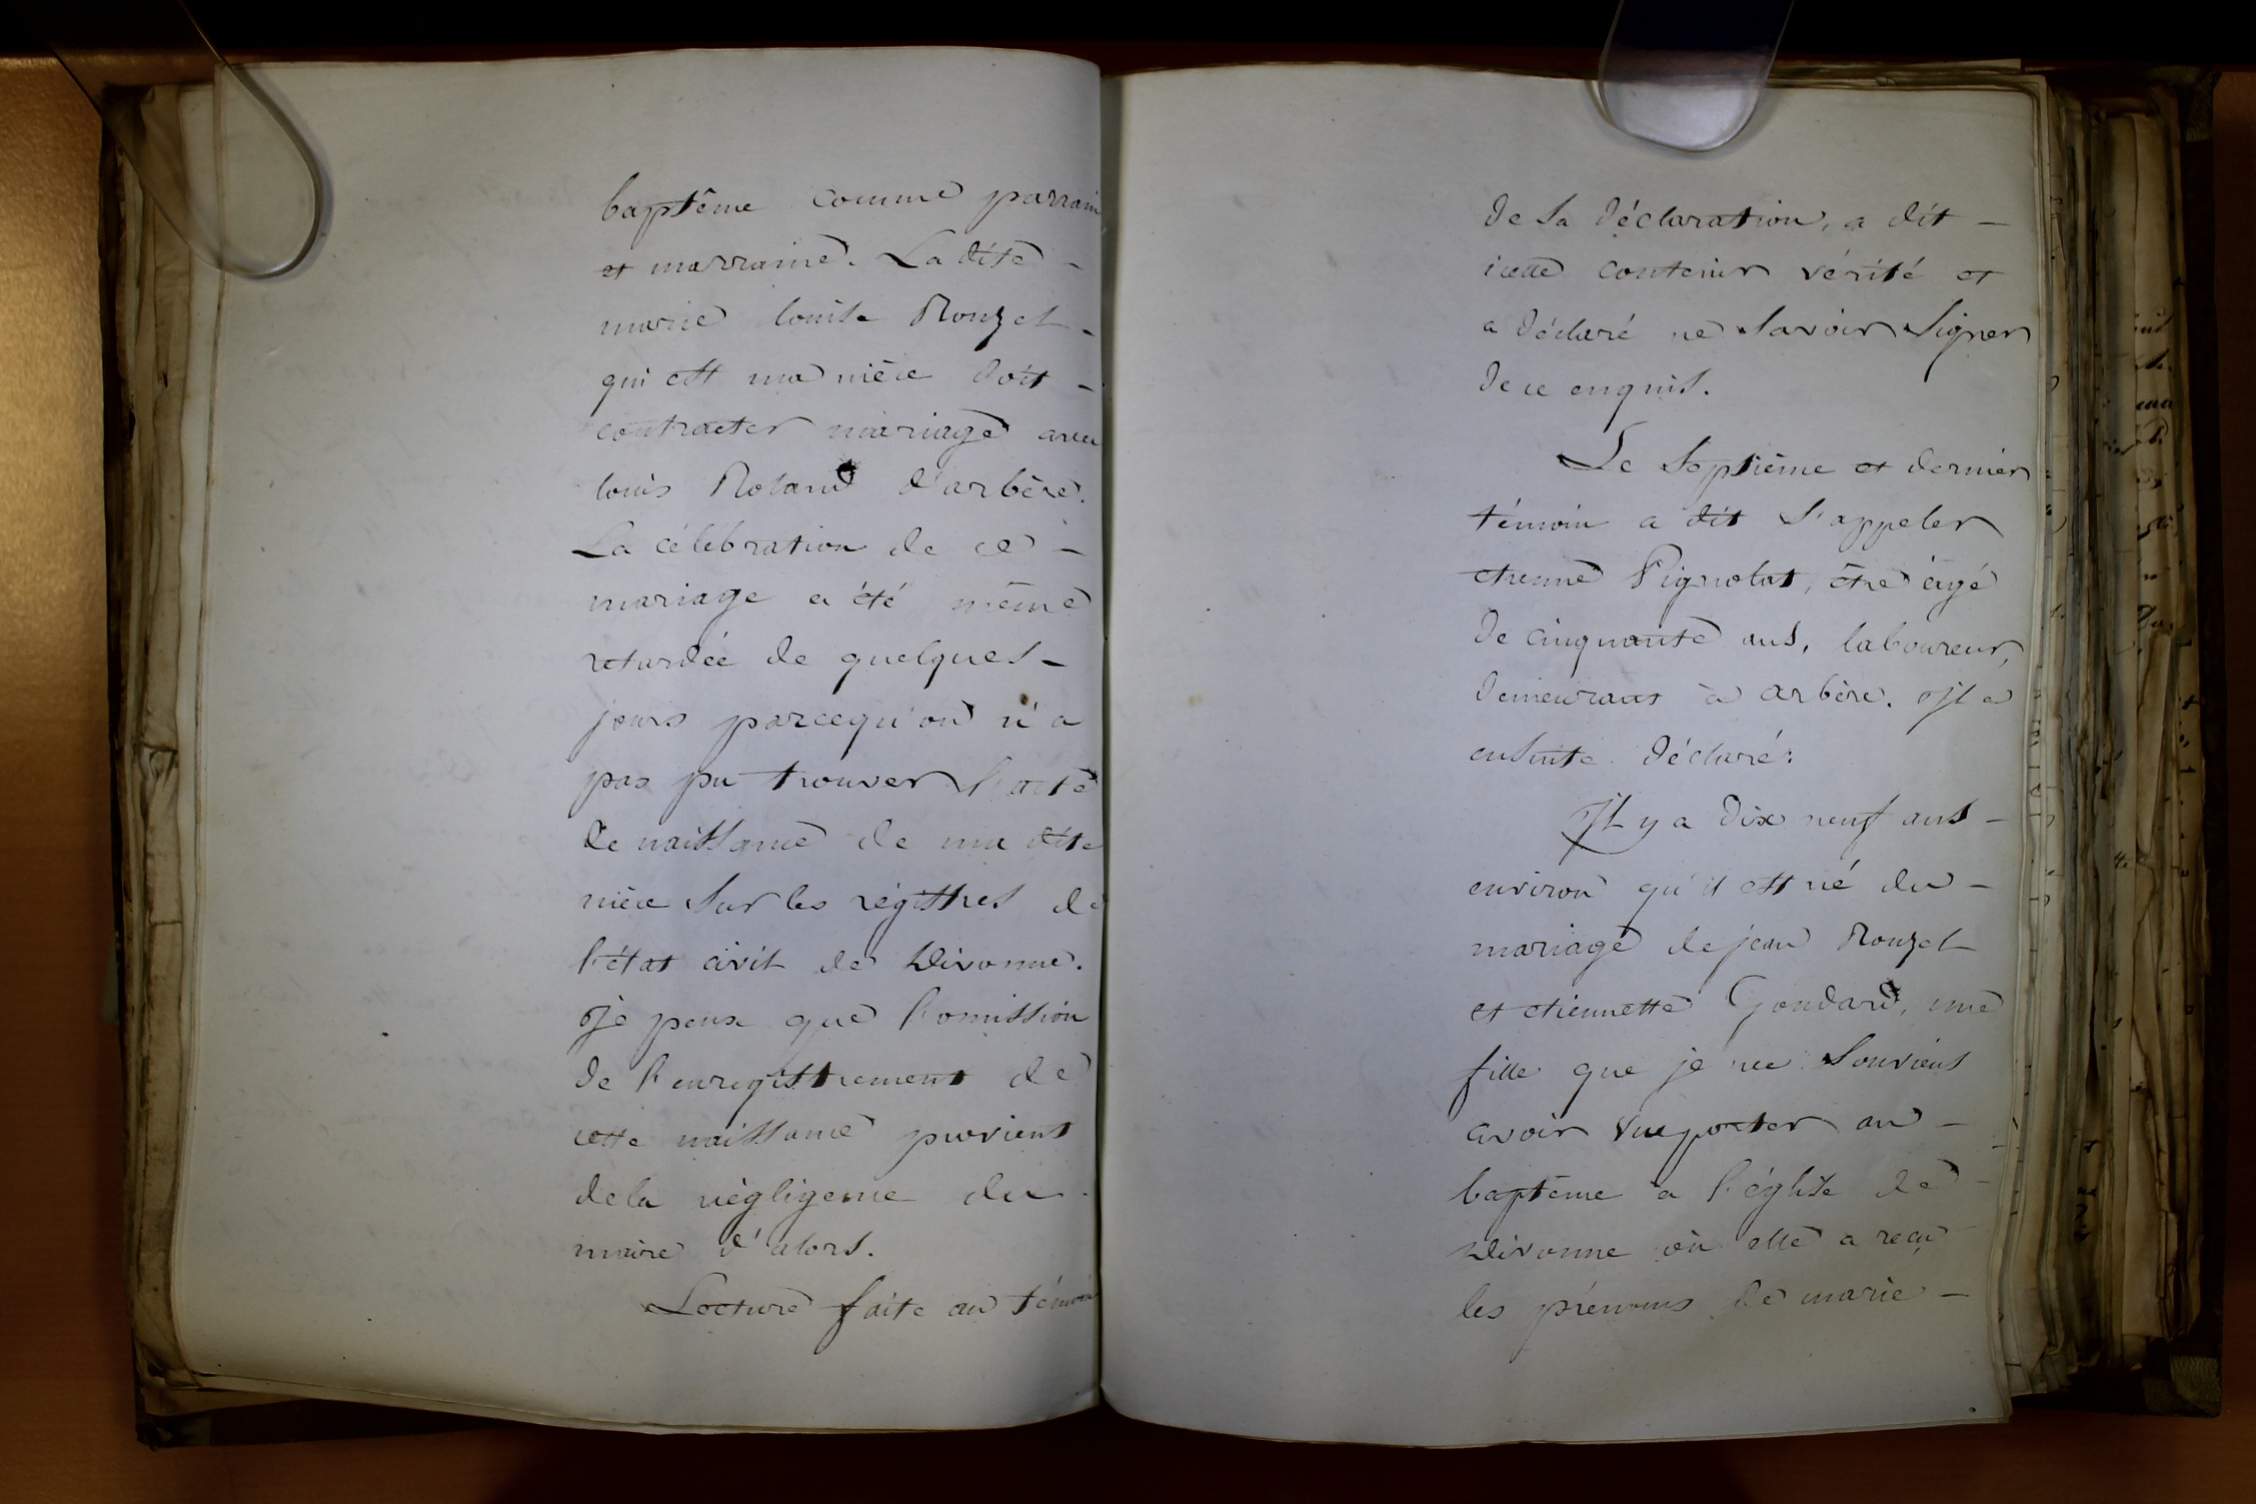 baptême comme parrain
et marraine. La dite -
marie louise Rouzet -
qui est ma nièce doit -
contracter mariage avec
louis Roland d'arbère.
La célébration de ce -
mariage a été même
retardée de quelques -
jours parcequ'on n'a
pas pu trouver l'acte
de naissance de ma dite
nièce sur les régistres de
l'état civil de Divonne.
Je pense que l'omission
de l'enregistrement de
cette naissance provient
de la négligence du
maire d'alors.
Lecture faite au témoin
de sa déclaration, a dit -
icelle contenir vérité et
a déclaré ne savoir signer
de ce enquis.
Le septième et dernier
témoin a dit s'appeler
etienne Pignolat, être âgé
de cinquante ans, laboureur,
demeurant à arbère. Il a
ensuite déclaré:
Il y a dix neuf ans -
environ qu'il est né du -
mariage de jean Rouzet
et etiennette Goudard, une
fille que je me souviens
avoir vue porter au -
baptême à l'église de -
Divonne où elle a reçu
les prénoms de marie -